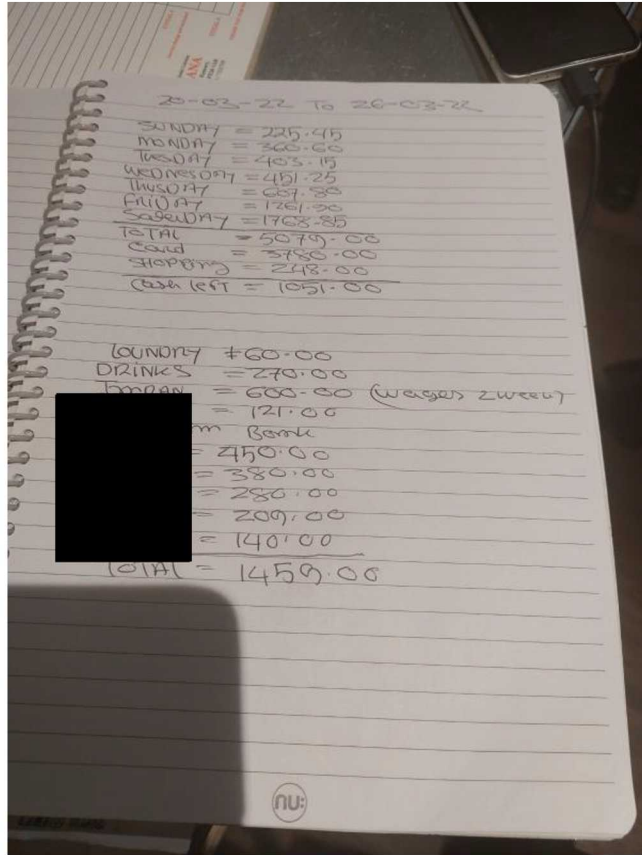 ANA
20-03-22 To 26-03-22
SUNDAY = 225.45
MONDAY = 360.60
TuesDAY = 403.15
WeDNesDAY = 451.25
ThusDAY = 607.80
FRIDAY = 1261.90
SaterDAY = 1768.85
TOTAL = 5079.00
Card = 3780.00
SHOPPING = 248.00
Cash left = 1051.00
LOUNDRY = 60.00
DRINKS = 270.00
= 600.00 (wages 2 week)
= 121.00
m Bank
= 450.00
= 380.00
= 280.00
= 209.00
= 140.00
TOTAL = 1459.00
nu: